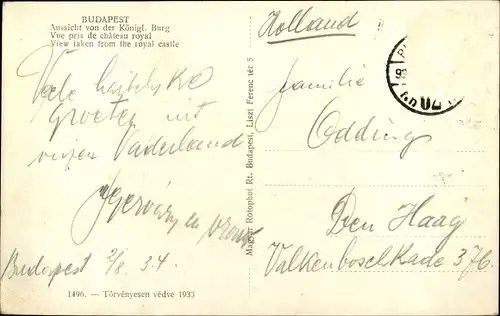 BUDAPEST
Aussicht von der Königl. Burg
Vue pris de château royal
View taken from the royal castle
Vele
Groeten uit
onzen Vaderland
en
Budapest 2/8. 34.
1496. — Törvényesen védve 1933
Magyar Rotophot Rt. Budapest, Liszt Ferenc tér 5
Holland
familie
Odding
Den Haag
Valkenboschkade 376.